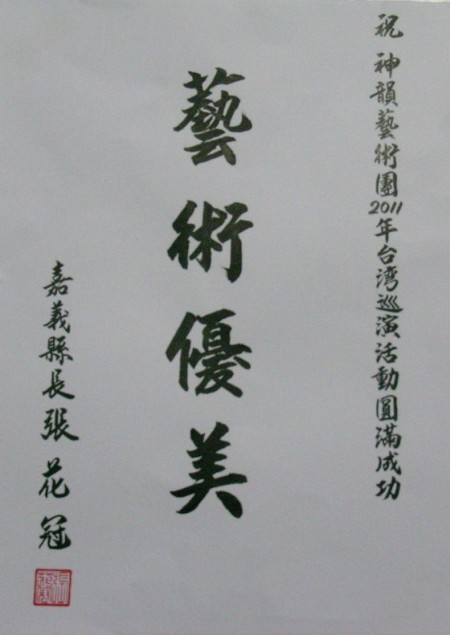 祝 神韻藝術團2011年台湾巡演活動圓滿成功
藝術優美
嘉義縣長張花冠